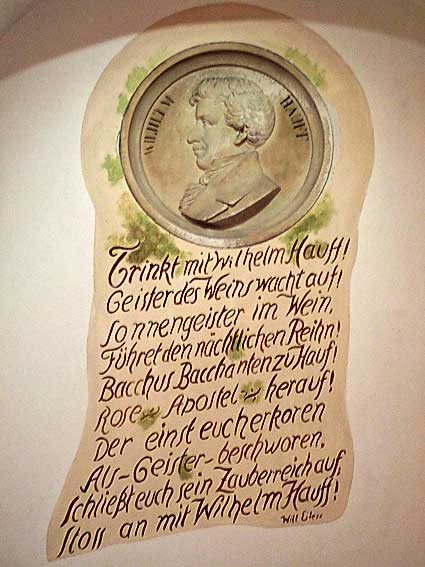 WILHELM HAUFF
Trinkt mit Wilhelm Hauff!
Geister des Weins wacht auf!
Sonnengeister im Wein,
Führet den nächtlichen Reihn!
Bacchus Bacchanten zu Hauf!
Rose ~ Apostel ~ herauf!
Der einst euch erkoren
Als-Geister-beschworen,
Schließt euch sein Zauberreich auf,
Stoss an mit Wilhelm Hauff!